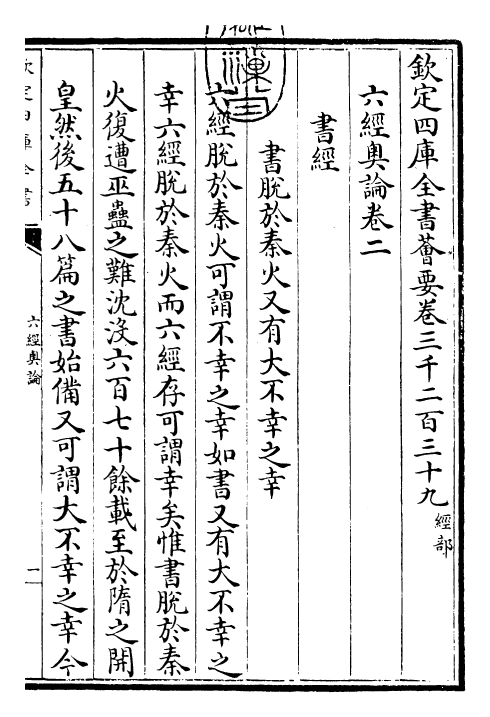 欽定四庫全書薈要卷三千二百三十九 經部
六經奧論卷二
書經
書脫於秦火又有大不幸之幸
六經脫於秦火可謂不幸之幸如書又有大不幸之
幸六經脫於秦火而六經存可謂幸矣惟書脫於秦
火復遭巫蠱之難沈沒六百七十餘載至於隋之開
皇然後五十八篇之書始備又可謂大不幸之幸今
欽定四庫全書
六經奧論
一